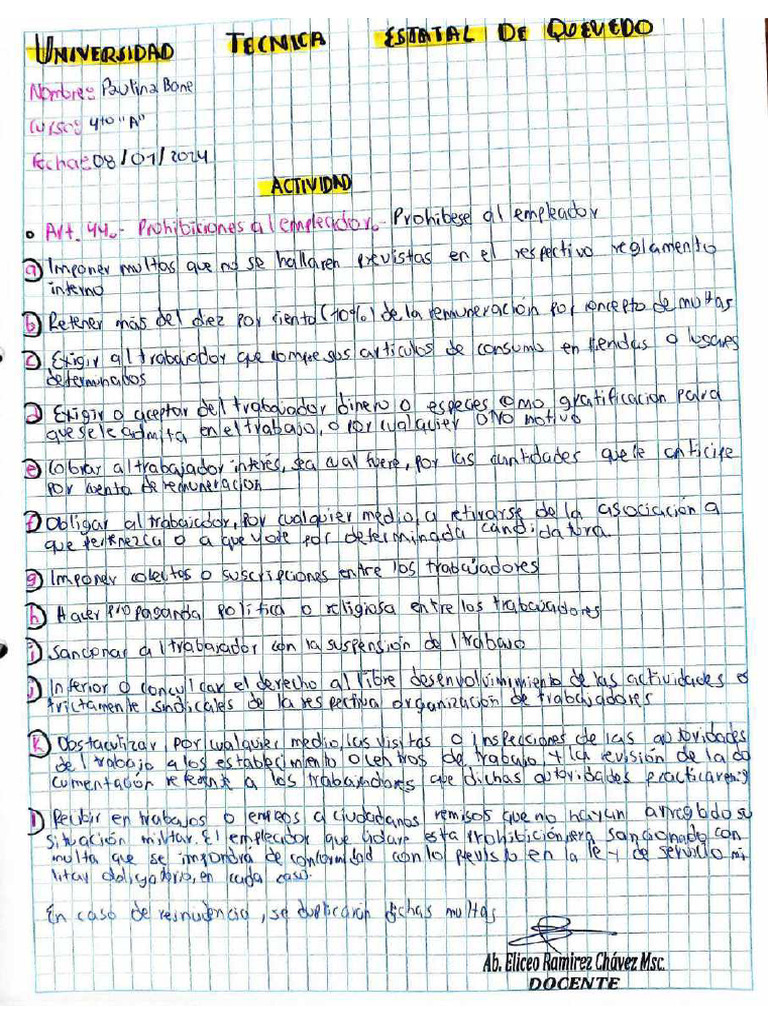 UNIVERSIDAD TECNICA ESTATAL DE QUEVEDO
Nombre: Paulina Bone
Curso: 4to "A"
Fecha: 08/01/2024
ACTIVIDAD
• Art. 44.- Prohibiciones al empleador.- Prohibese al empleador
a) Imponer multas que no se hallaren previstas en el respectivo reglamento
interno
b) Retener más del diez por ciento (10%) de la remuneración por concepto de multas
c) Exigir al trabajador que compre sus artículos de consumo en tiendas o lugares
determinados
d) Exigir o aceptar del trabajador dinero o especies como gratificación para
que se le admita en el trabajo, o por cualquier otro motivo
e) Cobrar al trabajador interés, sea cual fuere, por las cantidades que le anticipe
por cuenta de remuneración
f) Obligar al trabajador, por cualquier medio, a retirarse de la asociación a
que pertenezca o a que vote por determinada candidatura.
g) Imponer colectas o suscripciones entre los trabajadores
h) Hacer propaganda política o religiosa entre los trabajadores
i) Sancionar al trabajador con la suspensión del trabajo
j) Inferior o conculcar el derecho al libre desenvolvimiento de las actividades es
trictamente sindicales de la respectiva organización de trabajadores
k) Obstaculizar por cualquier medio, las visitas o inspecciones de las autoridades
del trabajo a los establecimiento o centros de trabajo, y la revisión de la do
cumentación referente a los trabajadores que dichas autoridades practicaren; y
l) Recibir en trabajos o empleos a ciudadanos remisos que no hayan arreglado su
situación militar. El empleador que violare esta prohibición, sera sancionado con
multa que se impondrá de conformidad con lo previsto en la ley de servicio mi
litar obligatorio, en cada caso.
En caso de reincidencia, se duplicarán dichas multas
Ab. Eliceo Ramirez Chávez Msc.
DOCENTE